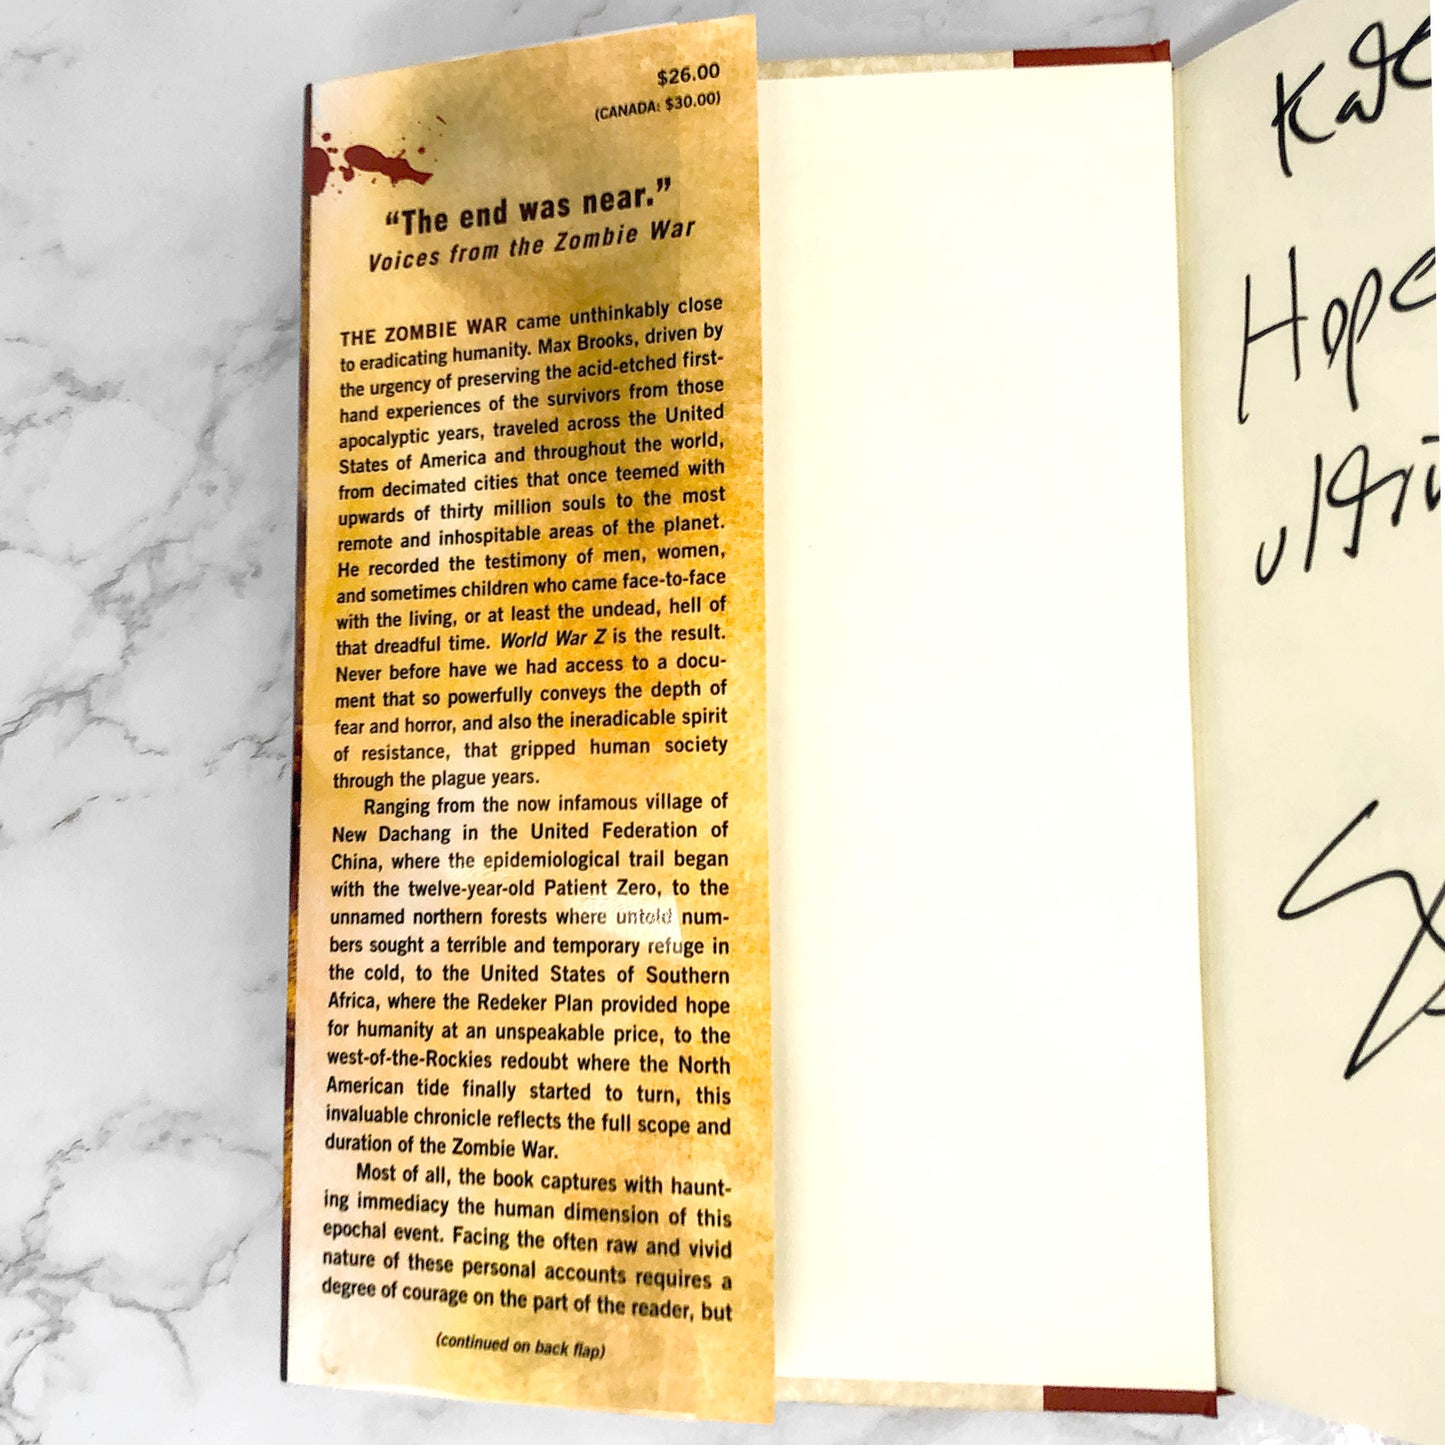 $26.00
(CANADA: $30.00)
“The end was near.”
Voices from the Zombie War
THE ZOMBIE WAR came unthinkably close
to eradicating humanity. Max Brooks, driven by
the urgency of preserving the acid-etched first-
hand experiences of the survivors from those
apocalyptic years, traveled across the United
States of America and throughout the world,
from decimated cities that once teemed with
upwards of thirty million souls to the most
remote and inhospitable areas of the planet.
He recorded the testimony of men, women,
and sometimes children who came face-to-face
with the living, or at least the undead, hell of
that dreadful time. World War Z is the result.
Never before have we had access to a docu-
ment that so powerfully conveys the depth of
fear and horror, and also the ineradicable spirit
of resistance, that gripped human society
through the plague years.
Ranging from the now infamous village of
New Dachang in the United Federation of
China, where the epidemiological trail began
with the twelve-year-old Patient Zero, to the
unnamed northern forests where untold num-
bers sought a terrible and temporary refuge in
the cold, to the United States of Southern
Africa, where the Redeker Plan provided hope
for humanity at an unspeakable price, to the
west-of-the-Rockies redoubt where the North
American tide finally started to turn, this
invaluable chronicle reflects the full scope and
duration of the Zombie War.
Most of all, the book captures with haunt-
ing immediacy the human dimension of this
epochal event. Facing the often raw and vivid
nature of these personal accounts requires a
degree of courage on the part of the reader, but
(continued on back flap)
Kate
Hope